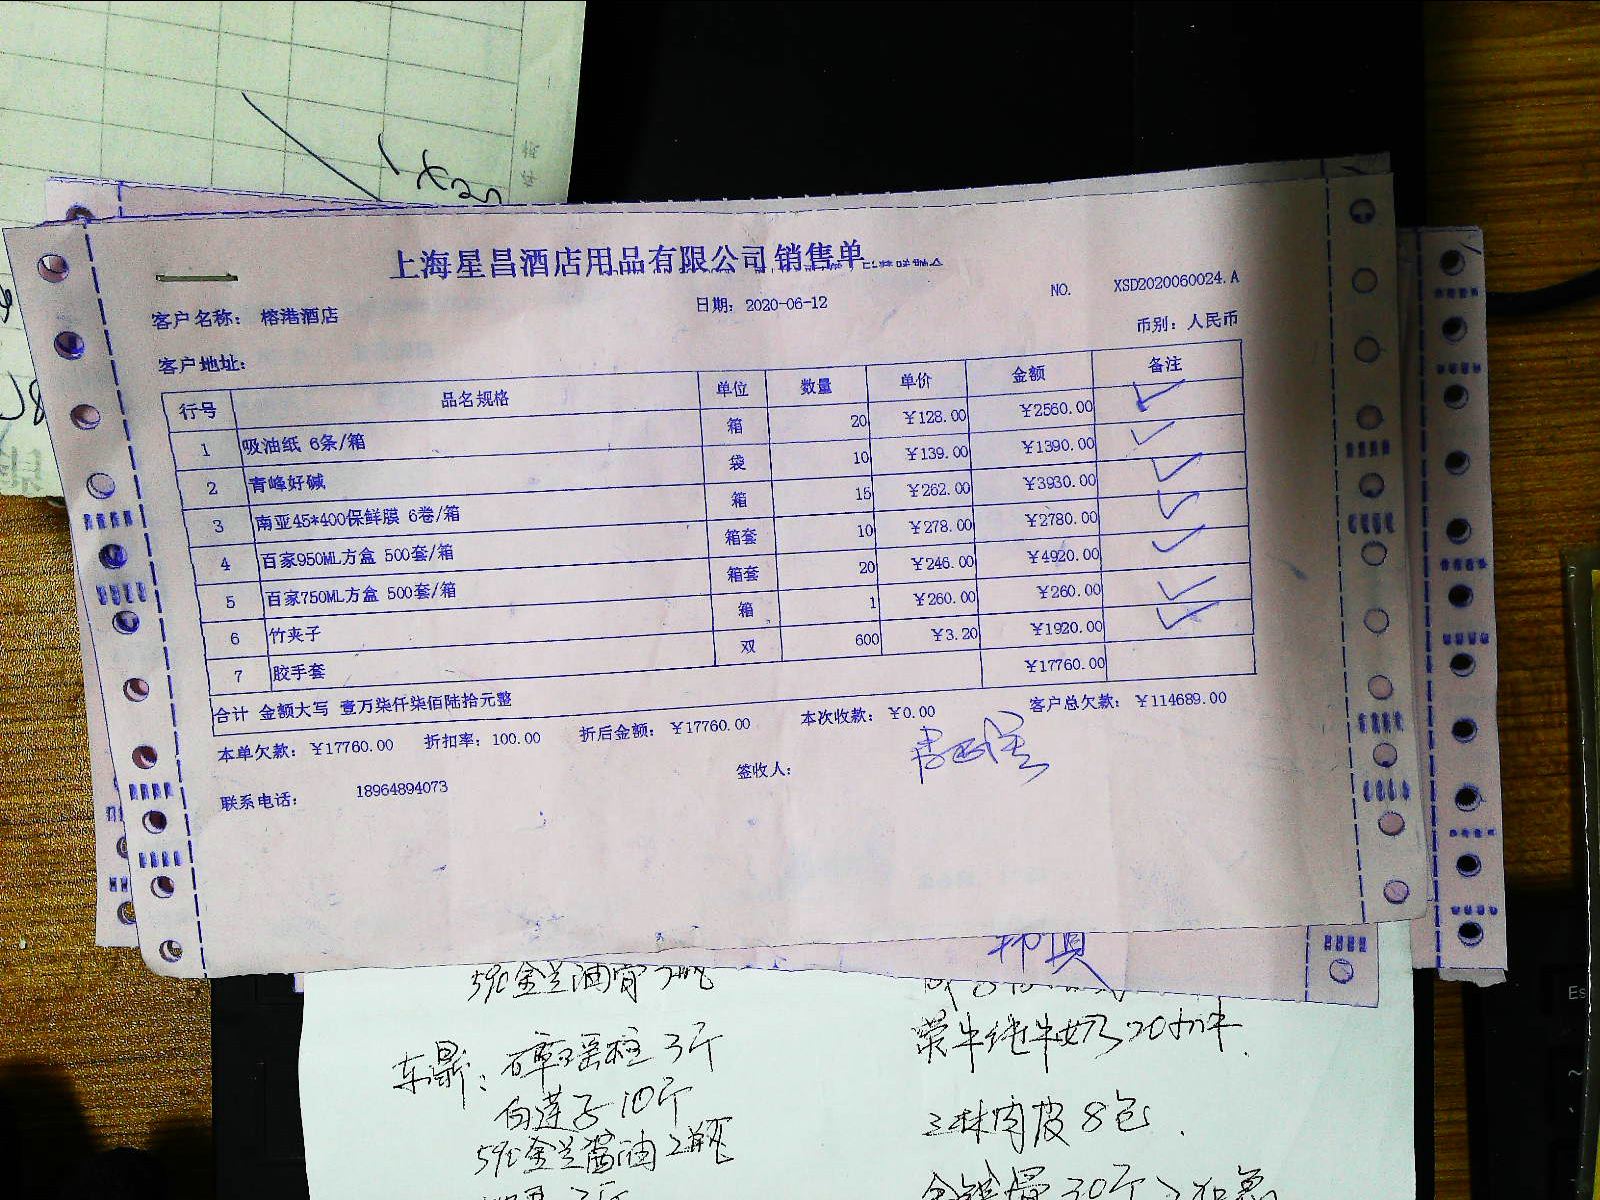 上海星昌酒店用品有限公司销售单
日期: 2020-06-12
NO. XSD2020060024.A
客户名称: 榕港酒店
币别: 人民币
客户地址:
行号 品名规格 单位 数量 单价 金额 备注
1 吸油纸 6条/箱 箱 20 ¥128.00 ¥2560.00
2 青峰好碱 袋 10 ¥139.00 ¥1390.00
3 南亚45*400保鲜膜 6卷/箱 箱 15 ¥262.00 ¥3930.00
4 百家950ML方盒 500套/箱 箱套 10 ¥278.00 ¥2780.00
5 百家750ML方盒 500套/箱 箱套 20 ¥246.00 ¥4920.00
6 竹夹子 箱 1 ¥260.00 ¥260.00
7 胶手套 双 600 ¥3.20 ¥1920.00
合计 金额大写 壹万柒仟柒佰陆拾元整 ¥17760.00
本单欠款: ¥17760.00 折扣率: 100.00 折后金额: ¥17760.00 本次收款: ¥0.00 客户总欠款: ¥114689.00
联系电话: 18964894073 签收人:
590金兰油膏2瓶
东鼎: 瑶柱3斤
白莲子10斤
590金兰酱油2瓶
纯牛奶20
肉皮8包
30斤